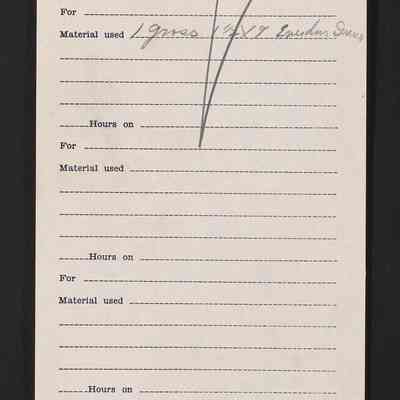 For
Material used 1 Gross 1½ X 9
Hours on
For
Material used
Hours on
For
Material used
Hours on